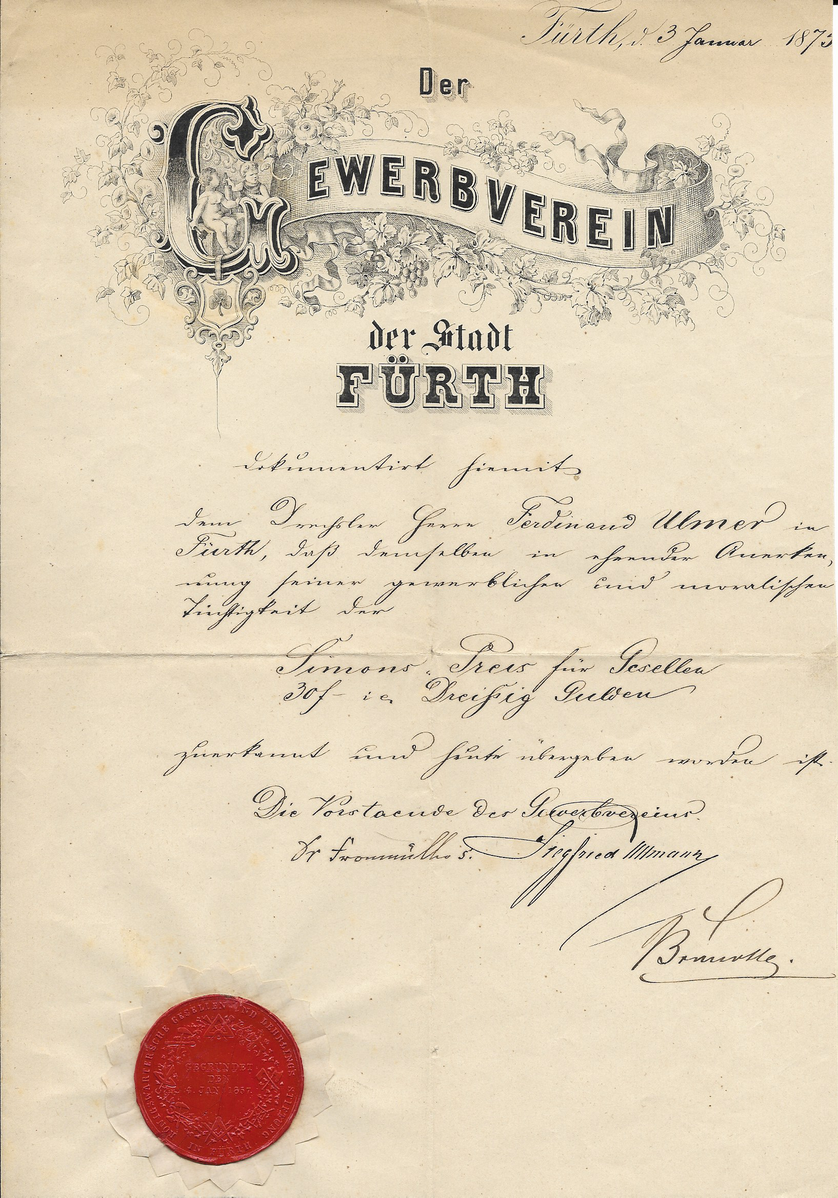 Fürth, d. 3 Januar 1873
Der
GEWERBVEREIN
der Stadt
FÜRTH
dokumentirt hiemit
dem Drechsler Herrn Ferdinand Ulmer in
Fürth, daß demselben in ehrender Anerken,
nung seiner gewerblichen und moralischen
Tüchtigkeit der
Simons-Preis für Gesellen
30 f- i e. Dreißig Gulden
zuerkannt und heute übergeben worden ist.
Die Vorstaende des Gewerbvereins.
Dr Fronmüller s. Siegfried Ullmann
KÖNIGSWARTER'SCHE GESELLEN UND LEHRLINGS STIFTUNG IN FÜRTH
GEGRÜNDET
DEN